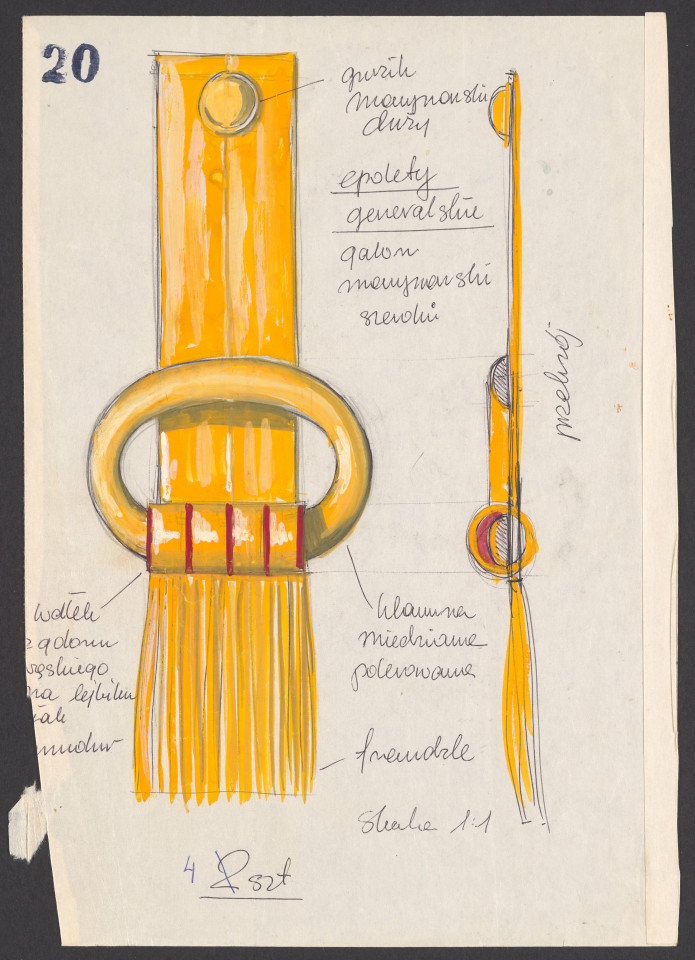 20
guzik
marynarski
duży
epolety
generalskie
galon
marynarski
szeroki
przekrój
wałek
z galonu
wąskiego
na lejbiku
jak
mundur
klamra
miedziana
polerowana
frendzle
Skala 1:1
4 2 szt